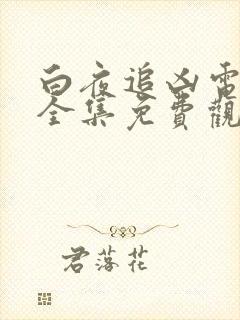 白夜追凶電
全集免費觀
君落花